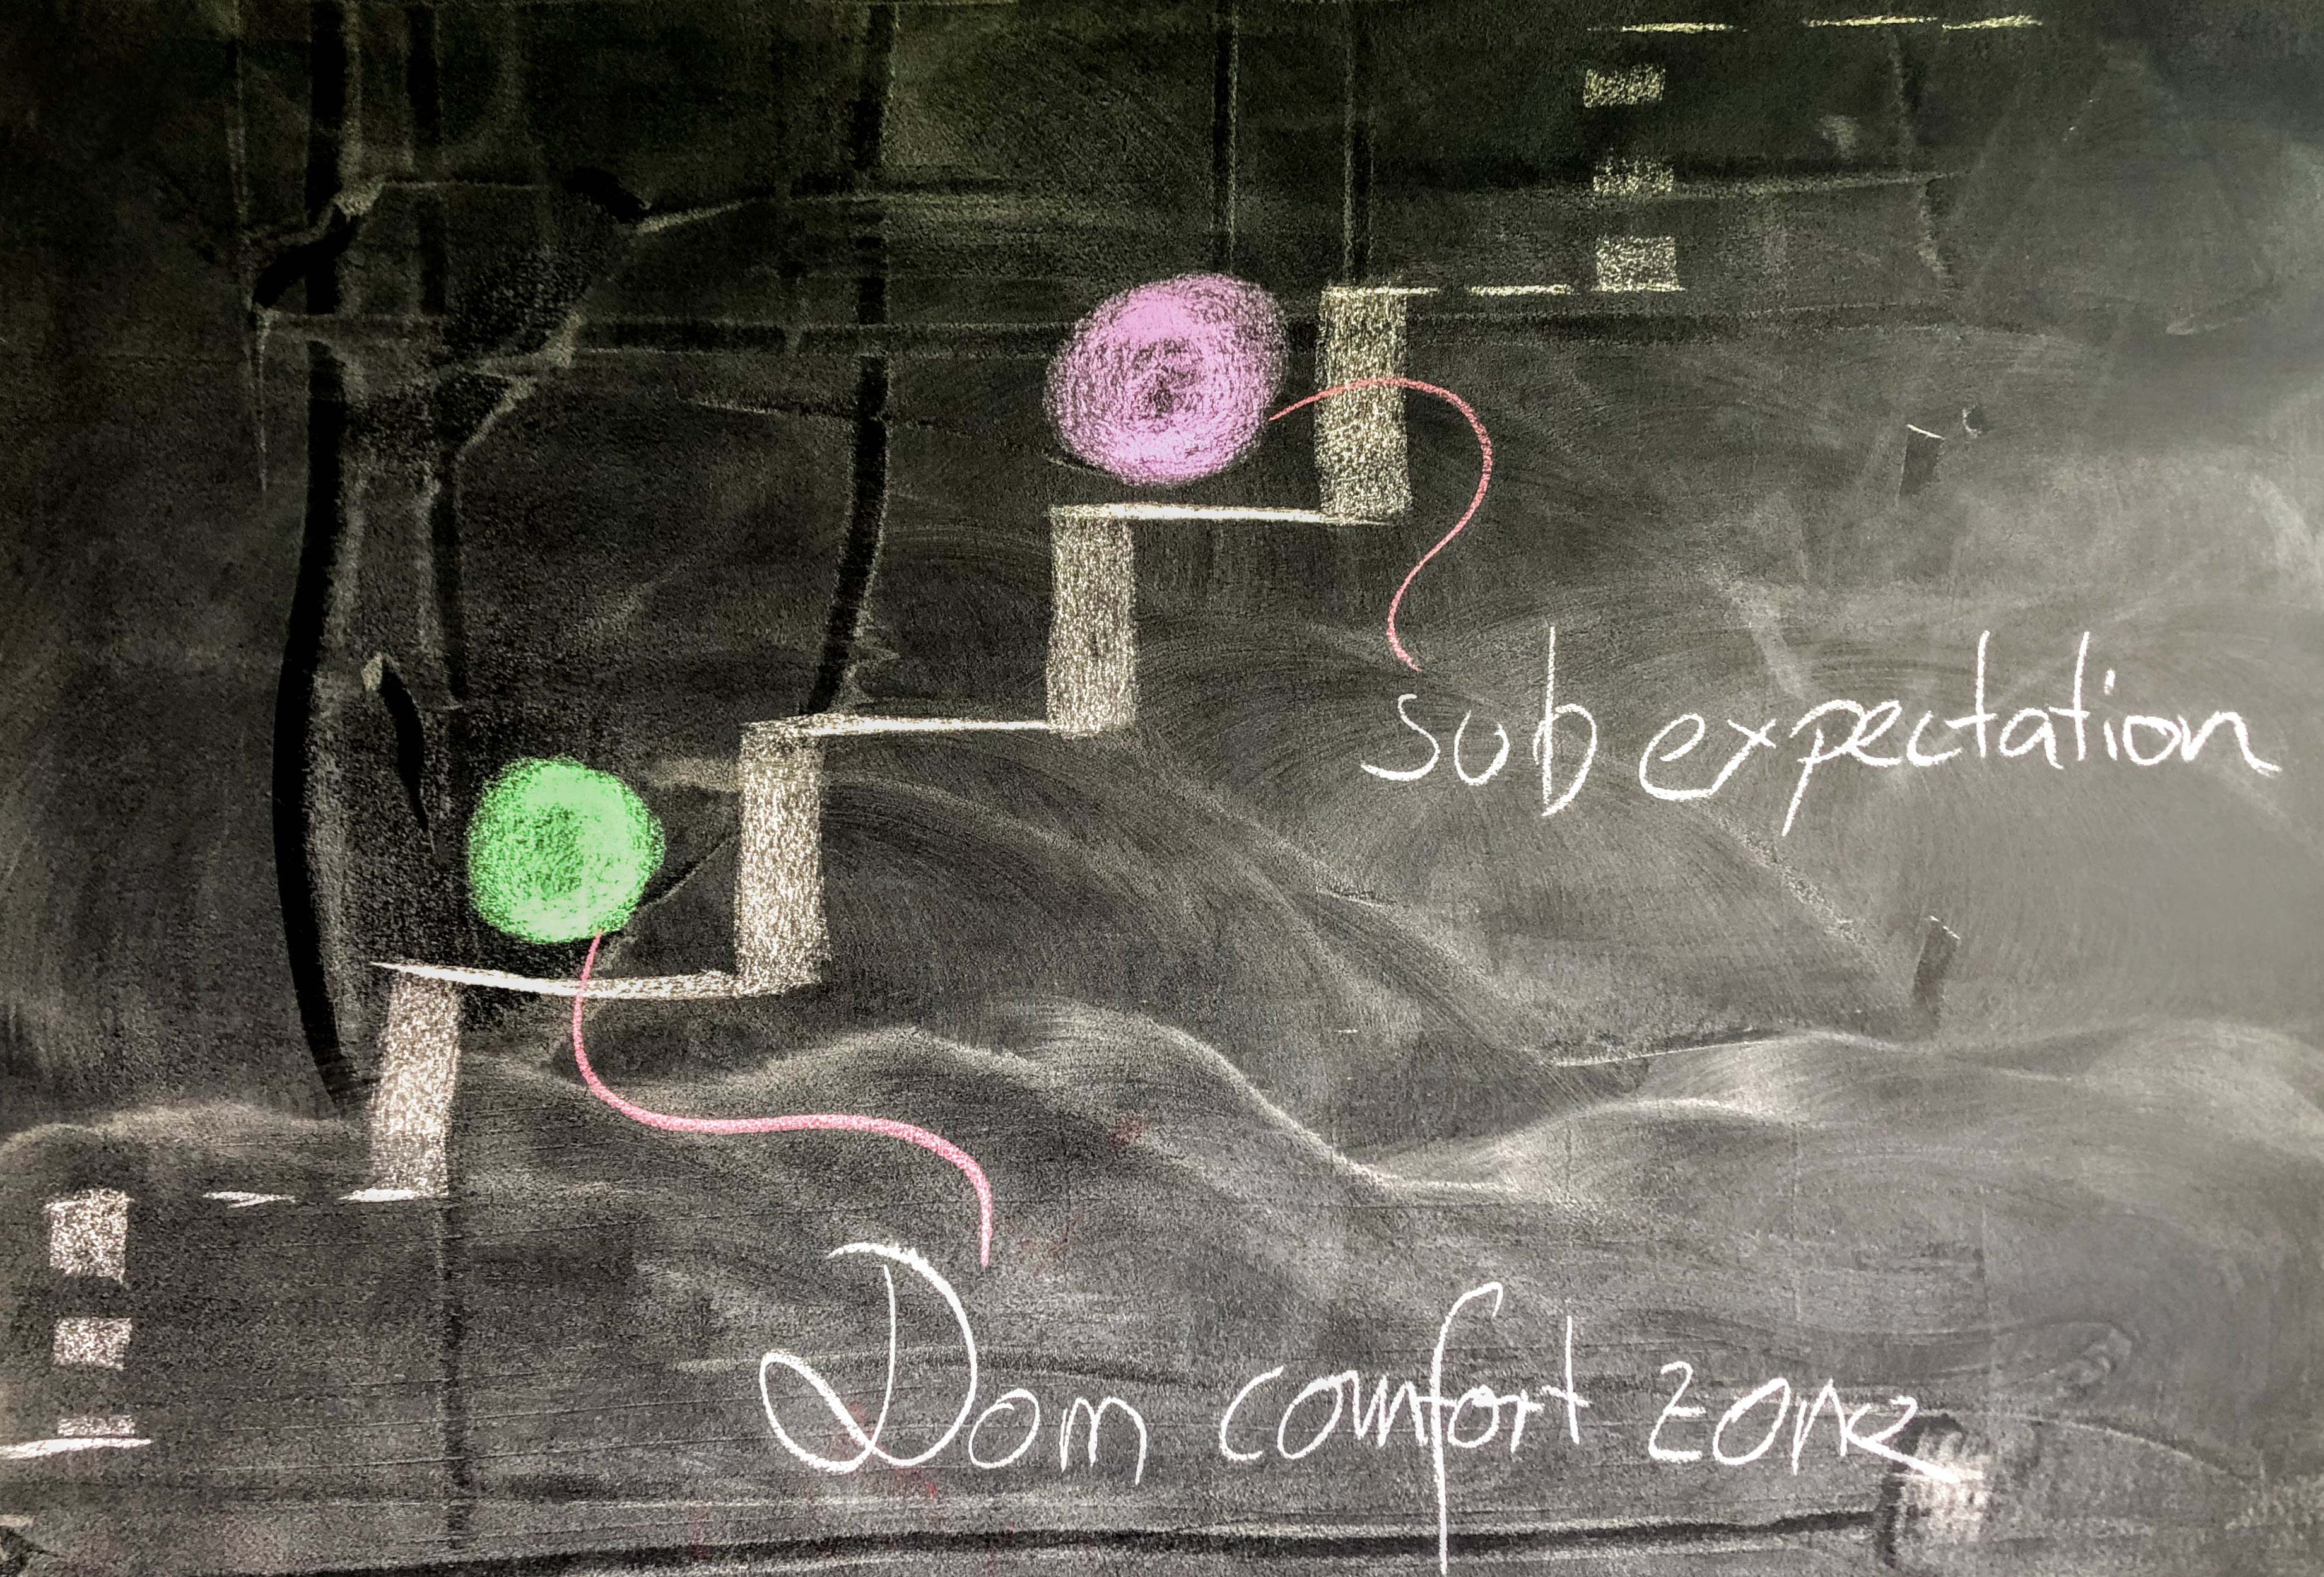 sub expectation
Dom comfort zone